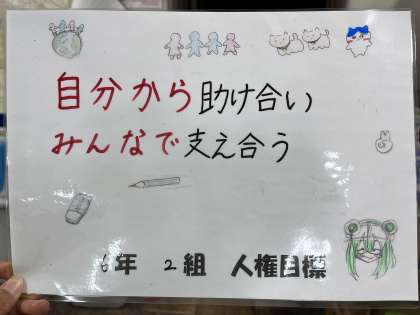 自分から助け合い
みんなで支え合う
6年 2組 人権目標